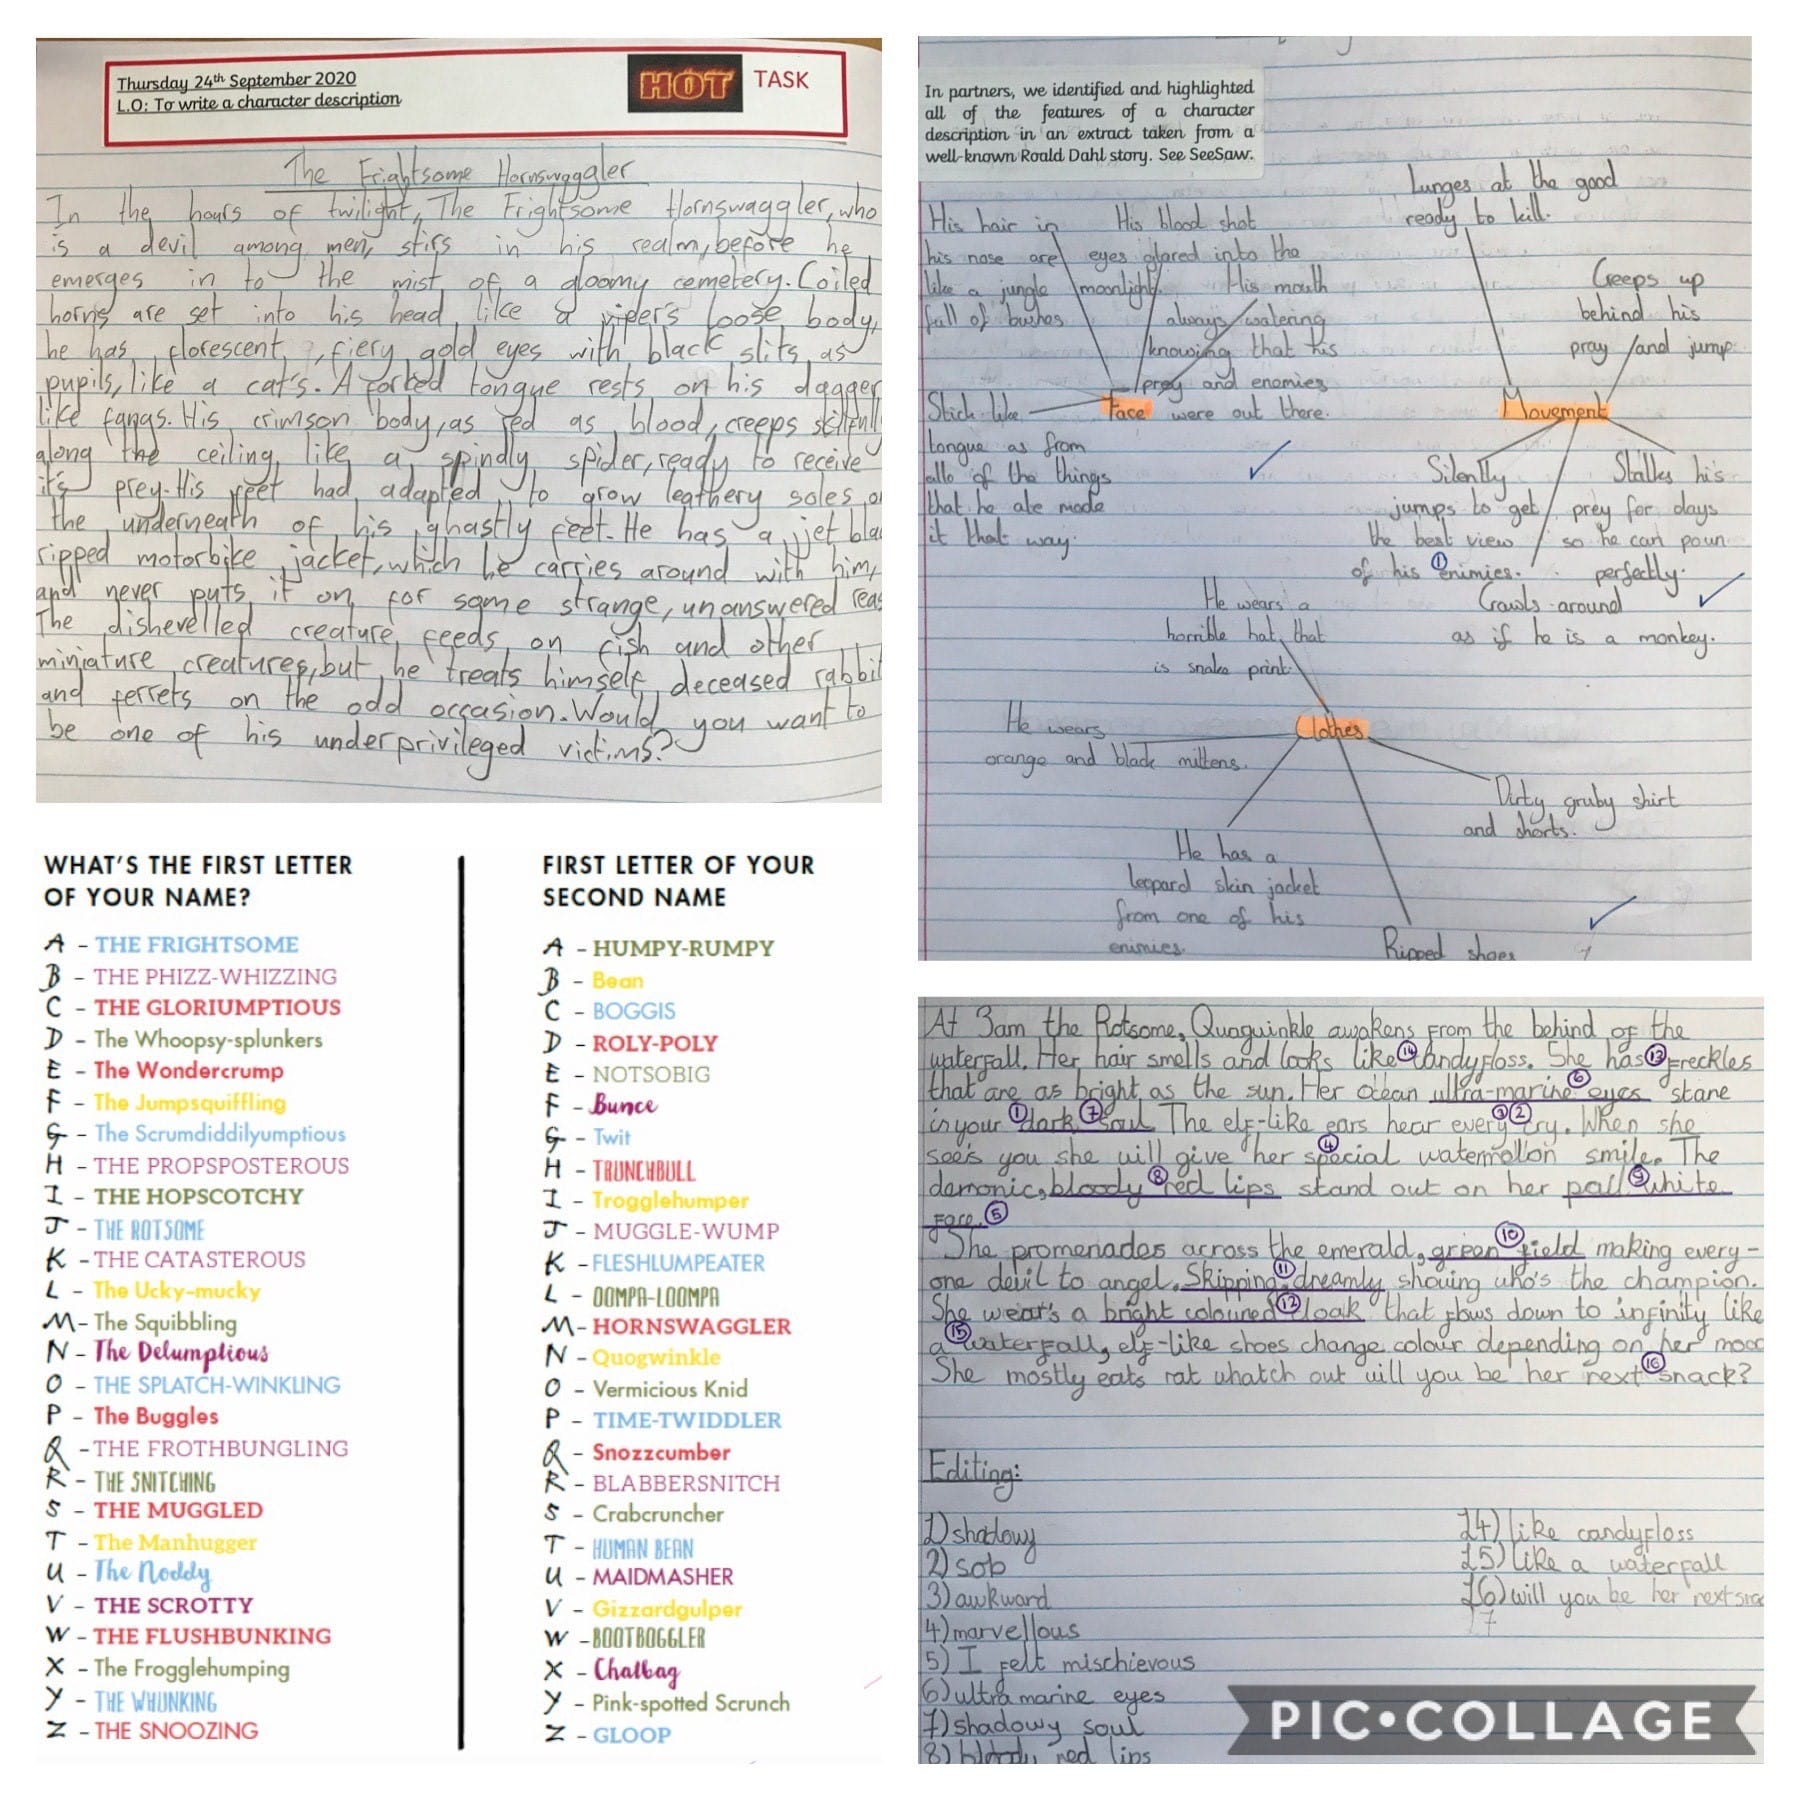 Thursday 24th September 2020
L.O: To write a character description
HOT TASK
The Frightsome Hornswaggler
In the hours of twilight, The Frightsome Hornswaggler, who
is a devil among men, stirs in his realm, before he
emerges in to the mist of a gloomy cemetery. Coiled
horns are set into his head like a viper's loose body,
he has florescent, fiery gold eyes with black slits as
pupils, like a cat's. A forked tongue rests on his dagger
like fangs. His crimson body, as red as blood, creeps skilfull
along the ceiling like a spindly spider, ready to receive
it's prey. His feet had adapted to grow leathery soles on
the underneath of his ghastly feet. He has a jet bla
ripped motorbike jacket, which he carries around with him,
and never puts it on for some strange, unanswered reas
The dishevelled creature feeds on fish and other
miniature creatures, but he treats himself deceased rabbit
and ferrets on the odd occasion. Would you want to
be one of his underprivileged victims?
In partners, we identified and highlighted
all of the features of a character
description in an extract taken from a
well-known Roald Dahl story. See SeeSaw.
His hair in
his nose are
like a jungle
full of bushes
His blood shot
eyes glared into the
moonlight.
His mouth
always watering
knowing that his
prey and enemies
were out there.
Face
Stick like
tongue as from
allo of the things
that he ate made
it that way.
Lunges at the good
ready to kill.
Creeps up
behind his
pray and jump
Movement
Silently
jumps to get
the best view
of his 1 enimies.
Stalks his
prey for days
so he can poun
perfectly.
Crawls around
as if he is a monkey.
He wears a
horrible hat, that
is snake print.
Clothes
He wears
orange and black mittens.
Dirty gruby shirt
and shorts.
He has a
leopard skin jacket
from one of his
enimies.
Ripped shoes
WHAT'S THE FIRST LETTER
OF YOUR NAME?
A - THE FRIGHTSOME
B - THE PHIZZ-WHIZZING
C - THE GLORIUMPTIOUS
D - The Whoopsy-splunkers
E - The Wondercrump
F - The Jumpsquiffling
G - The Scrumdiddilyumptious
H - THE PROPSPOSTEROUS
I - THE HOPSCOTCHY
J - THE ROTSOME
K - THE CATASTEROUS
L - The Ucky-mucky
M - The Squibbling
N - The Delumptious
O - THE SPLATCH-WINKLING
P - The Buggles
Q - THE FROTHBUNGLING
R - THE SNITCHING
S - THE MUGGLED
T - The Manhugger
U - The Noddy
V - THE SCROTTY
W - THE FLUSHBUNKING
X - The Frogglehumping
Y - THE WHUNKING
Z - THE SNOOZING
FIRST LETTER OF YOUR
SECOND NAME
A - HUMPY-RUMPY
B - Bean
C - BOGGIS
D - ROLY-POLY
E - NOTSOBIG
F - Bunce
G - Twit
H - TRUNCHBULL
I - Trogglehumper
J - MUGGLE-WUMP
K - FLESHLUMPEATER
L - OOMPA-LOOMPA
M - HORNSWAGGLER
N - Quogwinkle
O - Vermicious Knid
P - TIME-TWIDDLER
Q - Snozzcumber
R - BLABBERSNITCH
S - Crabcruncher
T - HUMAN BEAN
U - MAIDMASHER
V - Gizzardgulper
W - BOOTBOGGLER
X - Chatbag
Y - Pink-spotted Scrunch
Z - GLOOP
At 3am the Rotsome, Quoguinkle awakens from the behind of the
waterfall. Her hair smells and looks like 14 candyfloss. She has 13 freckles
that are as bright as the sun. Her ocean ultra-marine 6 eyes stane
in your 1 dark 7 soul. The elf-like ears hear every 3 2 cry. When she
see's you she will give her 4 special watermollon smile. The
demonic, bloody 8 red lips stand out on her pall 9 white
face. 5
She promenades across the emerald, green 10 field making every-
one devil to angel. Skipping 11 dreamly showing who's the champion.
She wear's a bright coloured 12 cloak that flows down to infinity like
a 15 waterfall, elf-like shoes change colour depending on her mood
She mostly eats rat whatch out will you be her next 16 snack?
Editing:
1) shadowy
2) sob
3) awkward
4) marvellous
5) I felt mischievous
6) ultra marine eyes
7) shadowy soul
8) bloody red lips
14) like candyfloss
15) like a waterfall
16) will you be her next snac
17
PIC•COLLAGE